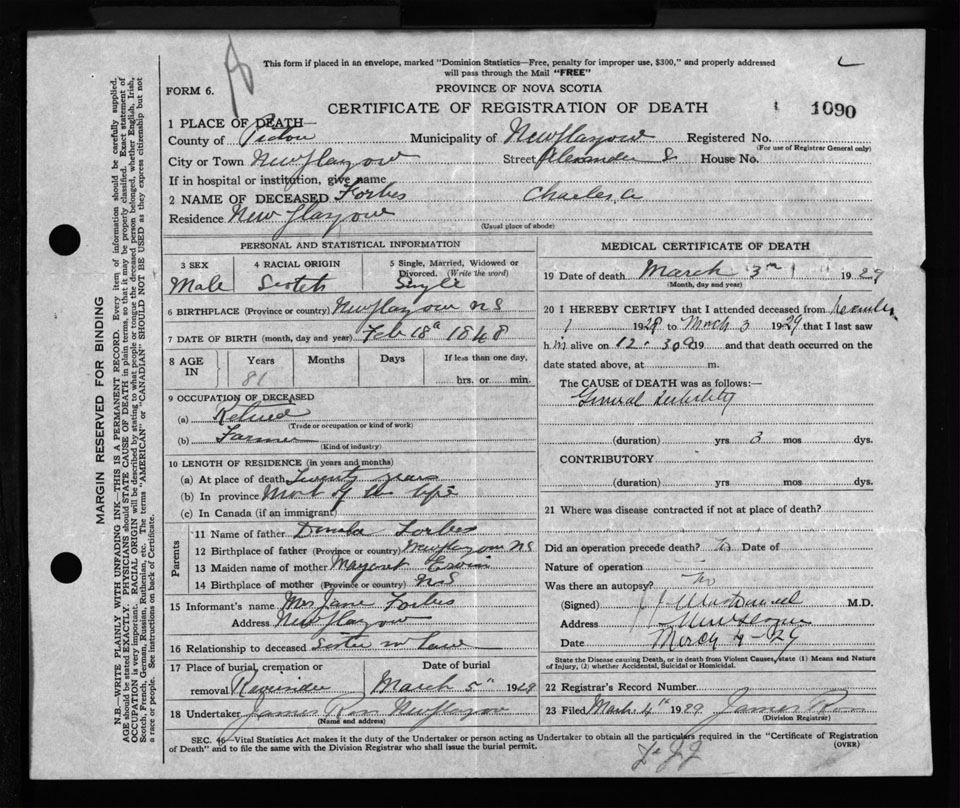 This form if placed in an envelope, marked "Dominion Statistics—Free, penalty for improper use, $300," and properly addressed
will pass through the Mail "FREE"
FORM 6.
PROVINCE OF NOVA SCOTIA
CERTIFICATE OF REGISTRATION OF DEATH
1090
1 PLACE OF DEATH—
County of Pictou Municipality of New Glasgow Registered No.
(For use of Registrar General only)
City or Town New Glasgow Street Alexander S House No.
If in hospital or institution, give name
2 NAME OF DECEASED Forbes Charles A
Residence New Glasgow
(Usual place of abode)
PERSONAL AND STATISTICAL INFORMATION
3 SEX 4 RACIAL ORIGIN 5 Single, Married, Widowed or
Divorced. (Write the word)
Male Scotch Single
6 BIRTHPLACE (Province or country) New Glasgow NS
7 DATE OF BIRTH (month, day and year) Feb 18th 1848
8 AGE IN Years Months Days If less than one day,
81 hrs. or min.
9 OCCUPATION OF DECEASED
(a) Retired
(Trade or occupation or kind of work)
(b) Farmer
(Kind of industry)
10 LENGTH OF RESIDENCE (in years and months)
(a) At place of death Twenty years
(b) In province Most of the life
(c) In Canada (if an immigrant)
Parents
11 Name of father Forbes
12 Birthplace of father (Province or country) New Glasgow NS
13 Maiden name of mother Margaret
14 Birthplace of mother (Province or country) NS
15 Informant's name Mrs Jane Forbes
Address New Glasgow
16 Relationship to deceased Sister in law
17 Place of burial, cremation or Date of burial
removal Riverside March 5th 1929
18 Undertaker James Ross New Glasgow
(Name and address)
MEDICAL CERTIFICATE OF DEATH
19 Date of death March 3rd 1929
(Month, day and year)
20 I HEREBY CERTIFY that I attended deceased from December
1 1928 to March 3 1929 that I last saw
h im alive on 12.30 19 and that death occurred on the
date stated above, at m.
The CAUSE of DEATH was as follows:
General Debility
(duration) yrs 3 mos dys.
CONTRIBUTORY
(duration) yrs mos dys.
21 Where was disease contracted if not at place of death?
Did an operation precede death? No Date of
Nature of operation
Was there an autopsy? No
(Signed) M.D.
Address New Glasgow
Date March 4-29
State the Disease causing Death, or in death from Violent Causes, state (1) Means and Nature
of Injury, (2) whether Accidental, Suicidal or Homicidal.
22 Registrar's Record Number
23 Filed March 4th 1929 James Ross
(Division Registrar)
SEC. 46—Vital Statistics Act makes it the duty of the Undertaker or person acting as Undertaker to obtain all the particulars required in the "Certificate of Registration
of Death" and to file the same with the Division Registrar who shall issue the burial permit.
(OVER)
MARGIN RESERVED FOR BINDING
N.B.—WRITE PLAINLY WITH UNFADING INK—THIS IS A PERMANENT RECORD. Every item of information should be carefully supplied.
AGE should be stated EXACTLY. PHYSICIANS should STATE CAUSE OF DEATH in plain terms, so that it may be properly classified. Exact statement of
OCCUPATION is very important. RACIAL ORIGIN will be described by stating to what people or tongue the deceased person belonged, whether English, Irish,
Scotch, French, German, Russian, Ruthenian, etc. The terms "AMERICAN" or "CANADIAN" SHOULD NOT BE USED as they express citizenship but not
a race or people. See instructions on back of Certificate.